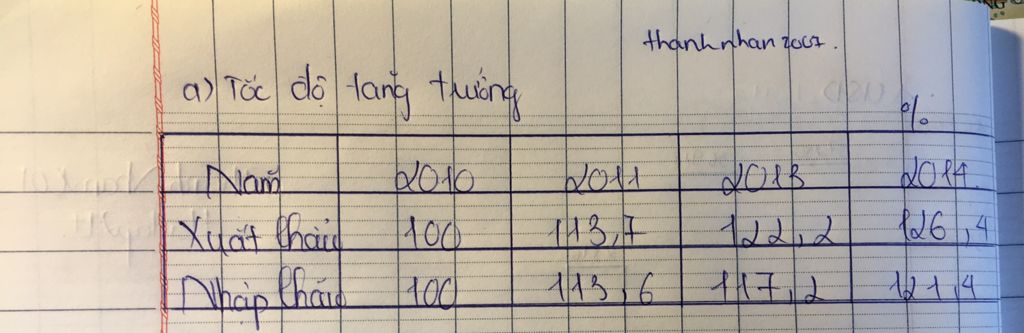 thanhnhan2007.
a) Tốc độ tăng trưởng
%
Năm 2010 2011 2013 2014
Xuất khẩu 100 113,7 122,2 126,4
Nhập khẩu 100 113,6 117,2 121,4